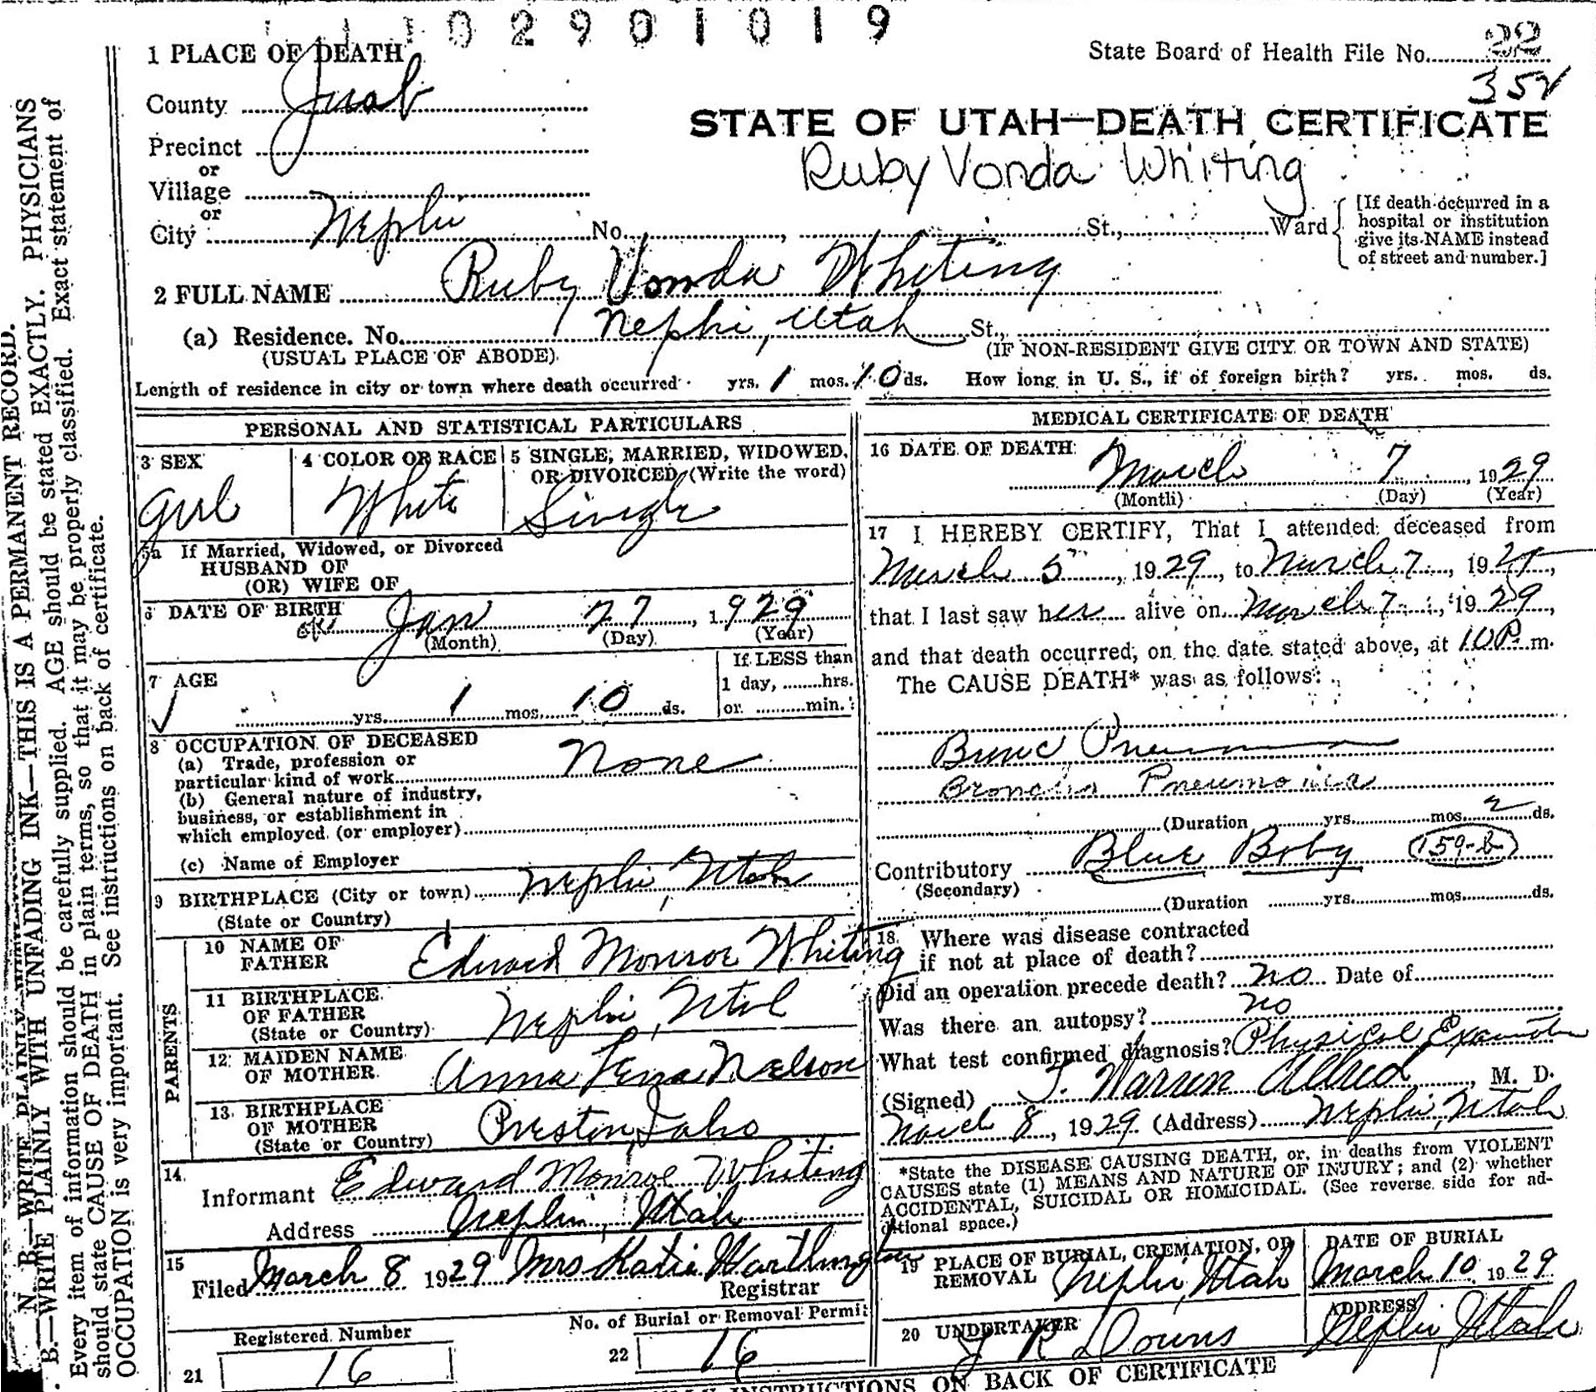 102901019
1 PLACE OF DEATH
State Board of Health File No. 22
352
County Juab
STATE OF UTAH—DEATH CERTIFICATE
Precinct
Ruby Vonda Whiting
or
Village
or
City Nephi No. St., Ward
[If death occurred in a
hospital or institution
give its NAME instead
of street and number.]
2 FULL NAME Ruby Vonda Whiting
(a) Residence. No. Nephi, Utah St.,
(USUAL PLACE OF ABODE) (IF NON-RESIDENT GIVE CITY OR TOWN AND STATE)
Length of residence in city or town where death occurred yrs. 1 mos. 10 ds. How long in U. S., if of foreign birth? yrs. mos. ds.
PERSONAL AND STATISTICAL PARTICULARS
3 SEX
Girl
4 COLOR OR RACE
White
5 SINGLE, MARRIED, WIDOWED,
OR DIVORCED (Write the word)
Single
5a If Married, Widowed, or Divorced
HUSBAND OF
(OR) WIFE OF
6 DATE OF BIRTH Jan 27, 1929
(Month) (Day) (Year)
7 AGE
yrs. 1 mos. 10 ds.
If LESS than
1 day, hrs.
or min.
8 OCCUPATION OF DECEASED
(a) Trade, profession or
particular kind of work None
(b) General nature of industry,
business, or establishment in
which employed (or employer)
(c) Name of Employer
9 BIRTHPLACE (City or town) Nephi, Utah
(State or Country)
PARENTS
10 NAME OF
FATHER Edward Monroe Whiting
11 BIRTHPLACE
OF FATHER Nephi, Utah
(State or Country)
12 MAIDEN NAME
OF MOTHER Anna Nelson
13 BIRTHPLACE
OF MOTHER Preston, Idaho
(State or Country)
14
Informant Edward Monroe Whiting
Address Nephi, Utah
15
Filed March 8 1929 Mrs Katie Worthington
Registrar
Registered Number
21 16
No. of Burial or Removal Permit
22 16
MEDICAL CERTIFICATE OF DEATH
16 DATE OF DEATH
March 7, 1929
(Month) (Day) (Year)
17 I HEREBY CERTIFY, That I attended deceased from
March 5, 1929, to March 7, 1929,
that I last saw her alive on March 7, 1929,
and that death occurred, on the date stated above, at 10 P. m.
The CAUSE DEATH* was as follows:
Pneumonia
Pneumonia
(Duration yrs. mos. 2 ds.
Contributory Blue Baby 159-b
(Secondary)
(Duration yrs. mos. ds.
18 Where was disease contracted
if not at place of death?
Did an operation precede death? no Date of
Was there an autopsy? no
What test confirmed diagnosis? Physical
(Signed) Warren Allred, M. D.
March 8, 1929 (Address) Nephi, Utah
*State the DISEASE CAUSING DEATH, or, in deaths from VIOLENT
CAUSES state (1) MEANS AND NATURE OF INJURY; and (2) whether
ACCIDENTAL, SUICIDAL OR HOMICIDAL. (See reverse side for ad-
ditional space.)
19 PLACE OF BURIAL, CREMATION, OR
REMOVAL Nephi, Utah
DATE OF BURIAL
March 10 1929
20 UNDERTAKER
J R Downs
ADDRESS
Nephi, Utah
INSTRUCTIONS ON BACK OF CERTIFICATE
N. B.—WRITE PLAINLY
B.—WRITE PLAINLY WITH UNFADING INK—THIS IS A PERMANENT RECORD.
Every item of information should be carefully supplied. AGE should be stated EXACTLY. PHYSICIANS
should state CAUSE OF DEATH in plain terms, so that it may be properly classified. Exact statement of
OCCUPATION is very important. See instructions on back of certificate.